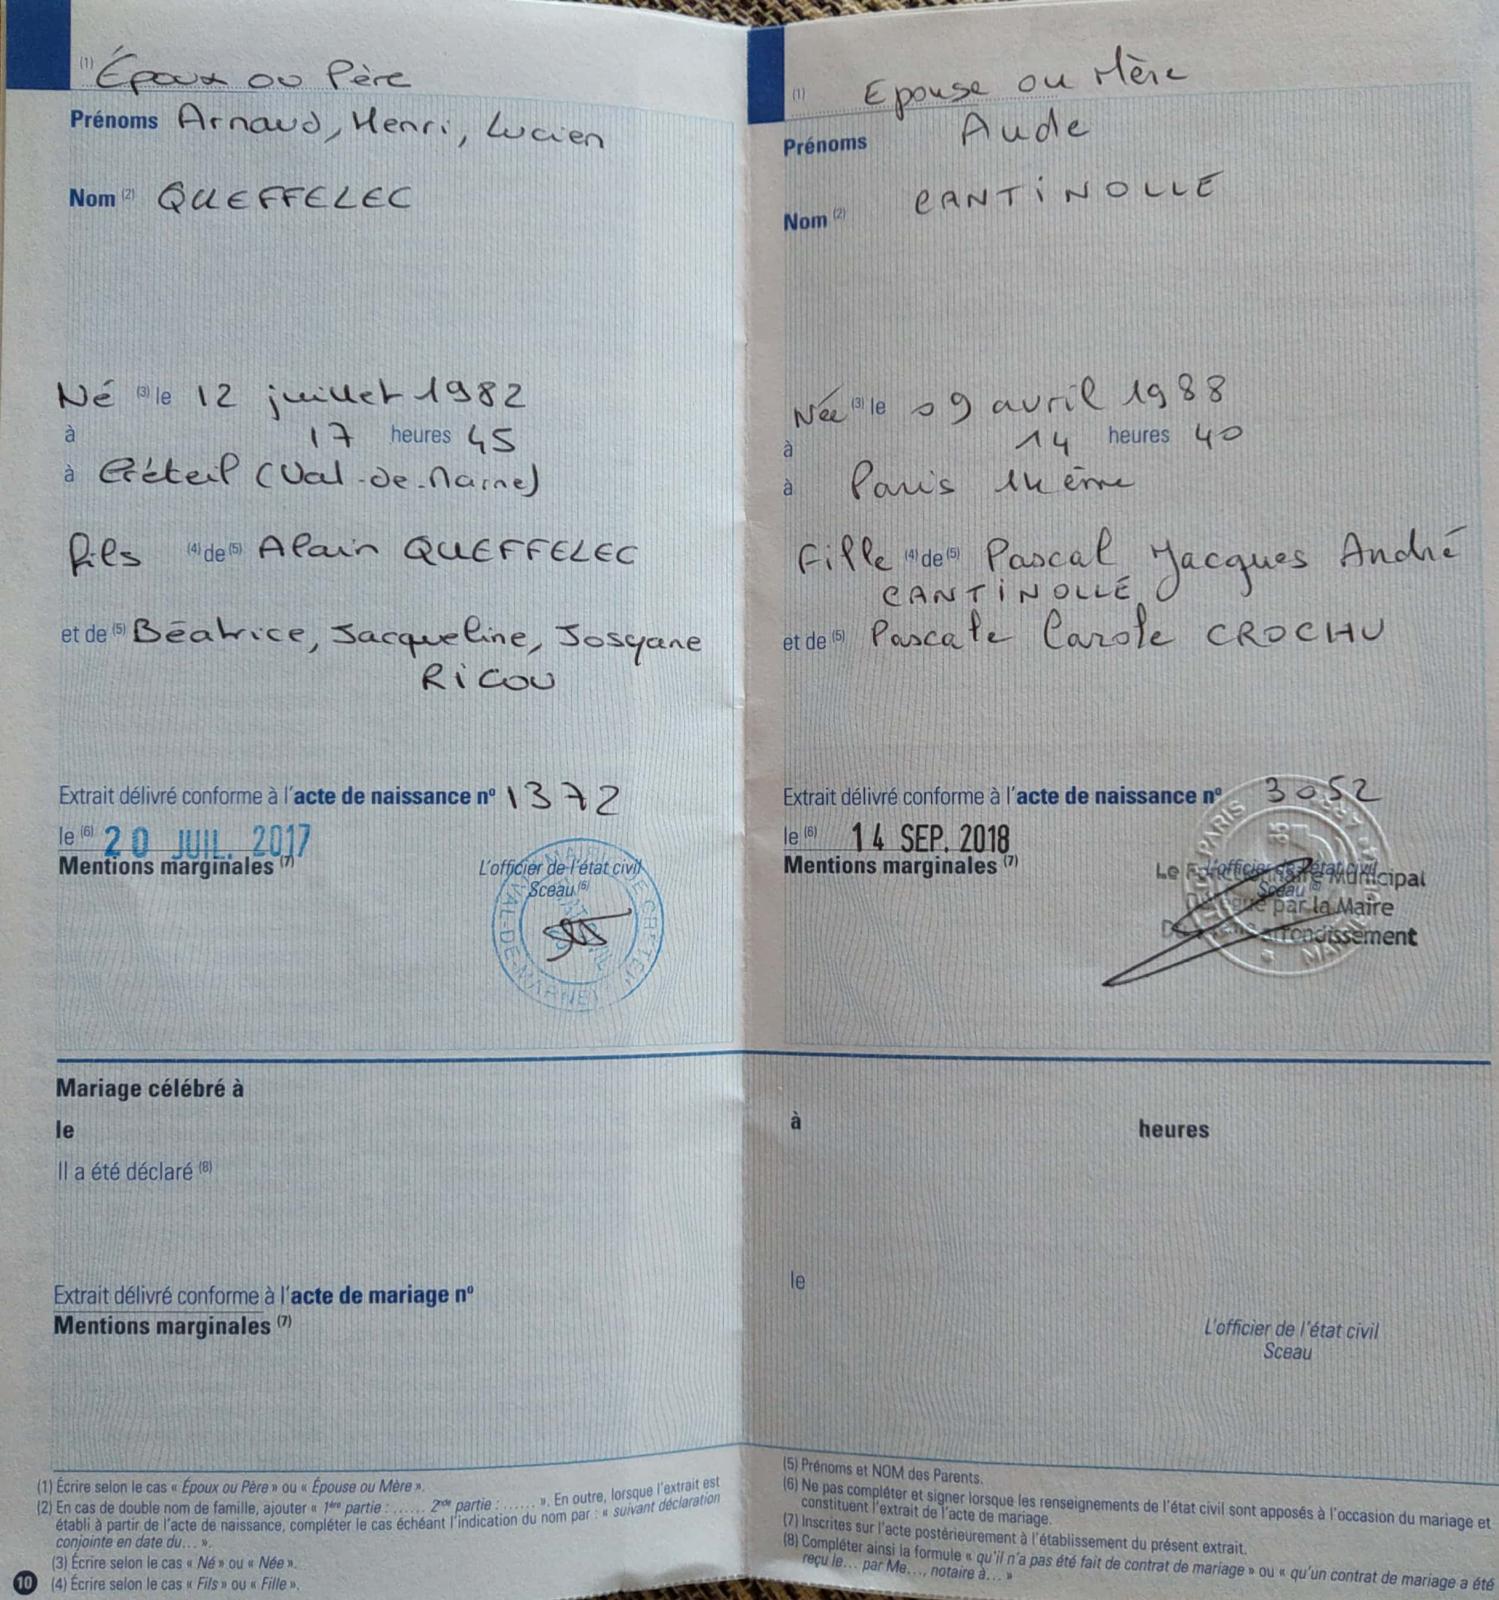 (1) Époux ou Père
Prénoms Arnaud, Henri, Lucien
Nom (2) QUEFFELEC
Né (3) le 12 juillet 1982
à 17 heures 45
à Créteil (Val-de-Marne)
fils (4) de (5) Alain QUEFFELEC
et de (5) Béatrice, Jacqueline, Josyane
RICOU
Extrait délivré conforme à l'acte de naissance nº 1372
le (6) 20 JUIL. 2017
Mentions marginales (7)
L'officier de l'état civil
Sceau (6)
VAL-DE-MARNE
Mariage célébré à
le
Il a été déclaré (8)
Extrait délivré conforme à l'acte de mariage nº
Mentions marginales (7)
(1) Écrire selon le cas « Époux ou Père » ou « Épouse ou Mère ».
(2) En cas de double nom de famille, ajouter « 1ère partie : ...... 2nde partie : ...... ». En outre, lorsque l'extrait est
établi à partir de l'acte de naissance, compléter le cas échéant l'indication du nom par : « suivant déclaration
conjointe en date du... ».
(3) Écrire selon le cas « Né » ou « Née ».
(4) Écrire selon le cas « Fils » ou « Fille ».
10
(1) Epouse ou Mère
Prénoms Aude
Nom (2) CANTINOLLE
Née (3) le 09 avril 1988
à 14 heures 40
à Paris 14ème
Fille (4) de (5) Pascal Jacques André
CANTINOLLE
et de (5) Pascale Carole CROCHU
Extrait délivré conforme à l'acte de naissance nº 3052
le (6) 14 SEP. 2018
Mentions marginales (7)
L'officier de l'état civil
Sceau (6)
Le Municipal
par la Maire
arrondissement
PARIS
à heures
le
L'officier de l'état civil
Sceau
(5) Prénoms et NOM des Parents.
(6) Ne pas compléter et signer lorsque les renseignements de l'état civil sont apposés à l'occasion du mariage et
constituent l'extrait de l'acte de mariage.
(7) Inscrites sur l'acte postérieurement à l'établissement du présent extrait.
(8) Compléter ainsi la formule « qu'il n'a pas été fait de contrat de mariage » ou « qu'un contrat de mariage a été
reçu le... par Me..., notaire à... »